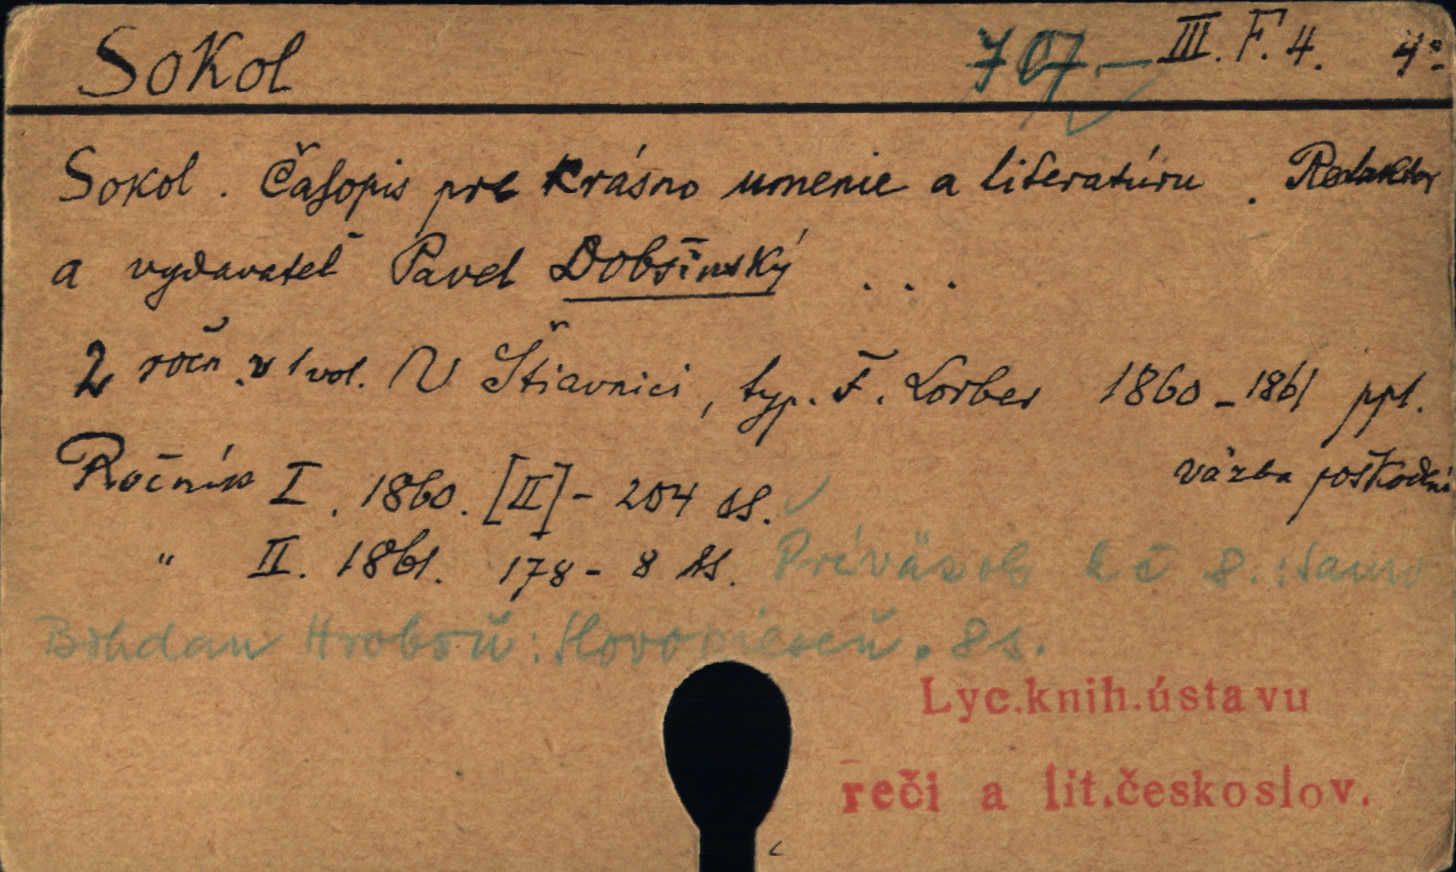 Sokol 707.- III. F. 4. 4°
Sokol. Časopis pre krásno umenie a literatúru. Redaktor
a vydavateľ Pavel Dobšinský ...
2 ročn. v 1 vol. V Štiavnici, typ. F. Lorber 1860-1861 ppl.
väzba poškodená
Ročník I. 1860. [II]- 204 ss.
" II. 1861. 178- 8 ss. Príväzok k č 8.: Samo
Bohdan Hroboň: Slovopieseň. 8 s.
Lyc.knih.ústavu
reči a lit.českoslov.